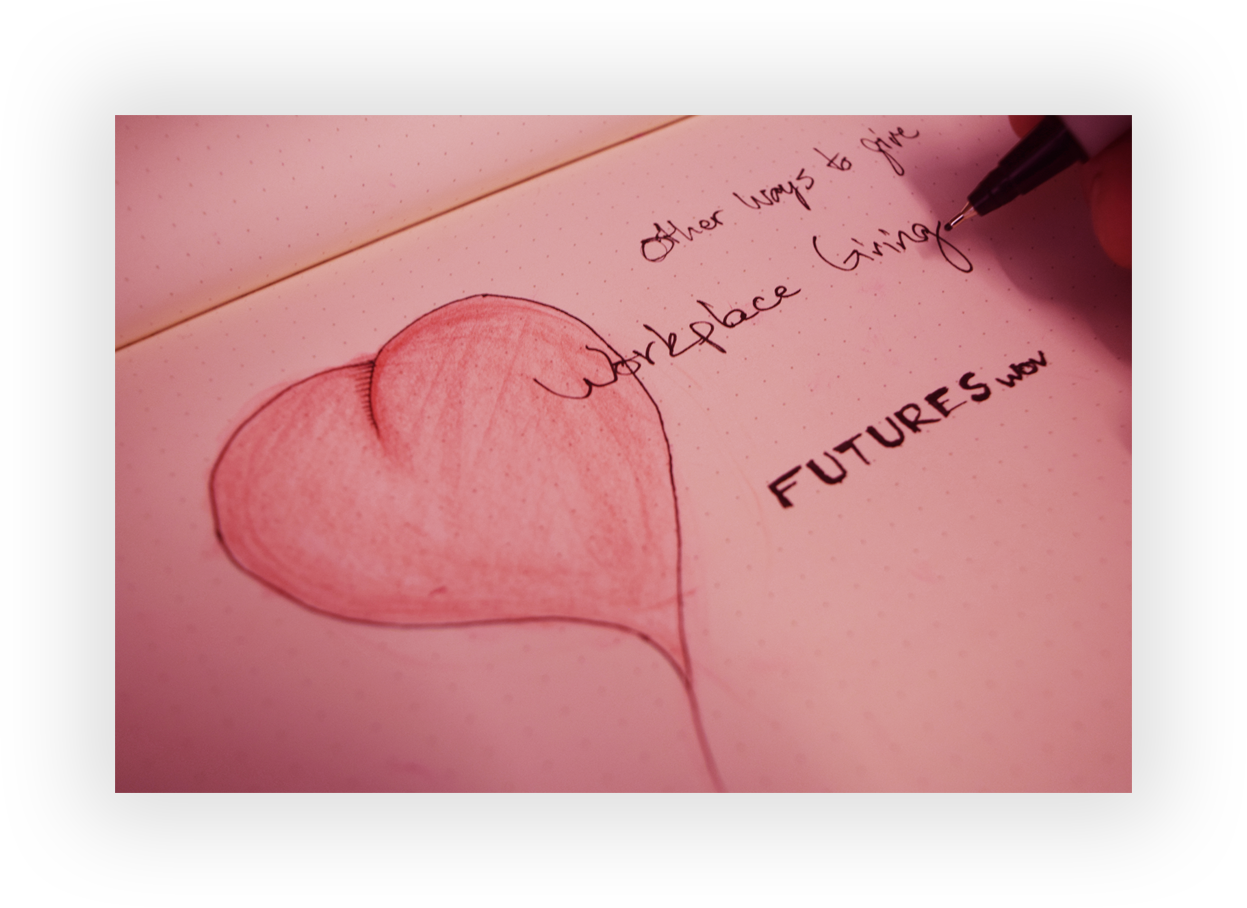 Other ways to give
Workplace Giving
FUTURES.wov